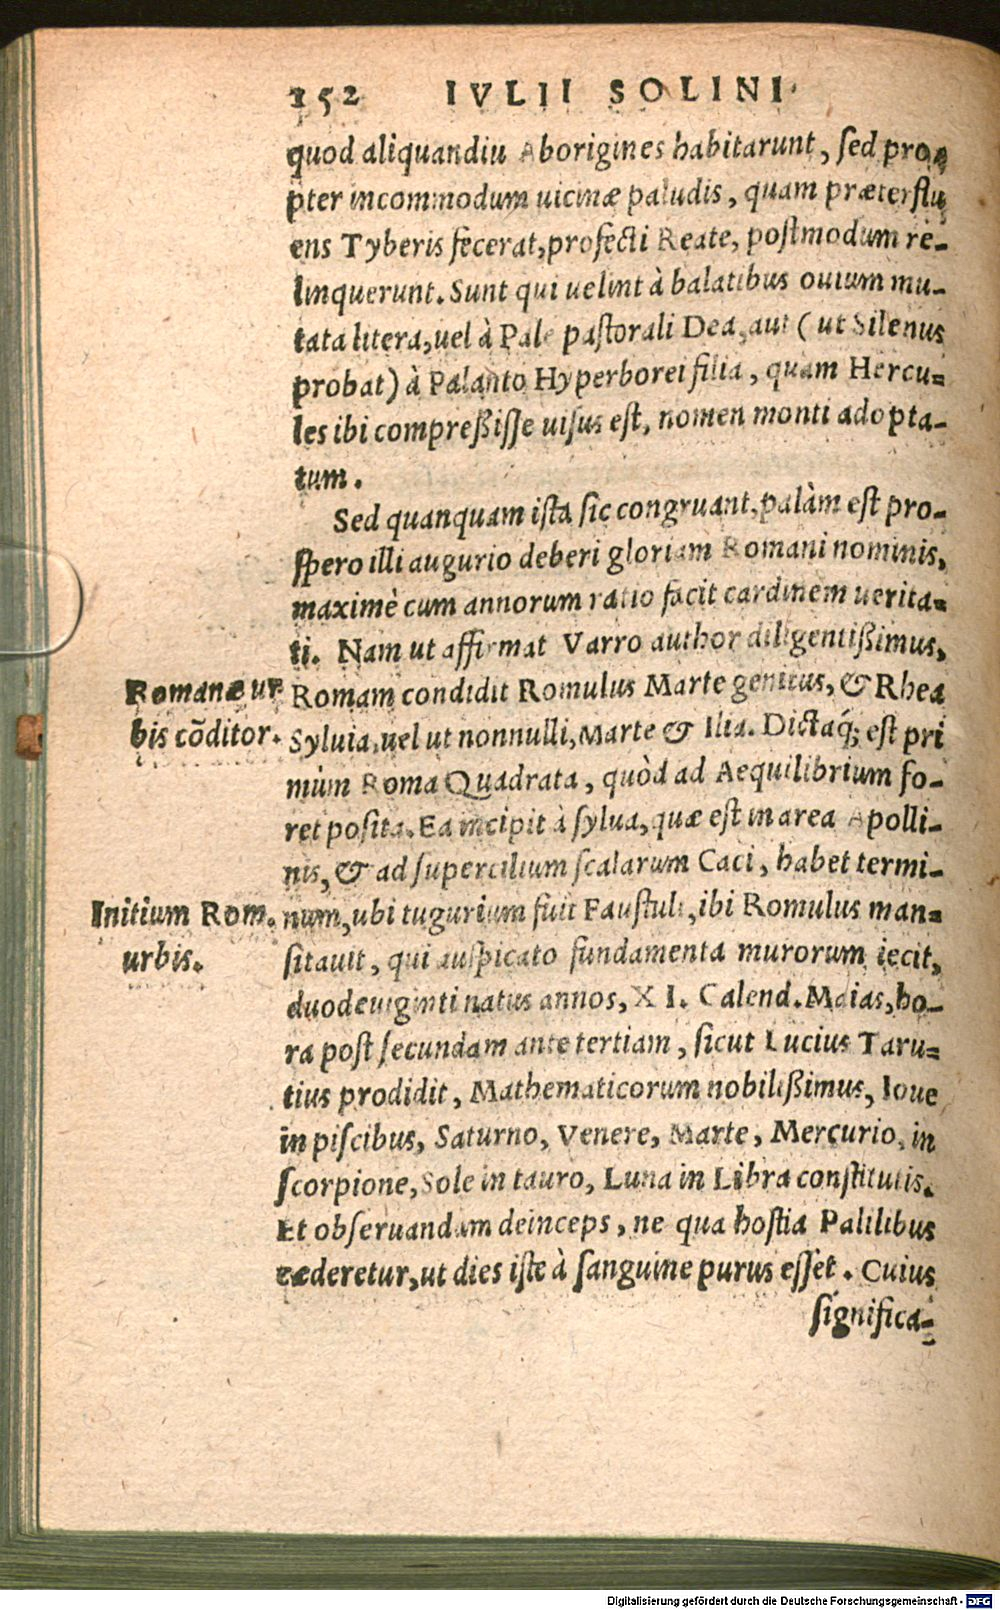 152 IVLII SOLINI
quod aliquandiu Aborigines habitarunt, sed pro-
pter incommodum uicinæ paludis, quam præterflu
ens Tyberis fecerat, profecti Reate, postmodum re-
linquerunt. Sunt qui uelint à balatibus ouium mu-
tata litera, uel à Pale pastorali Dea, aut ( ut Silenus
probat) à Palanto Hyperborei filia, quam Hercu-
les ibi compreßisse uisus est, nomen monti adopta-
tum.
Sed quanquam ista sic congruant, palàm est pro-
spero illi augurio deberi gloriam Romani nominis,
maximè cum annorum ratio facit cardinem uerita-
ti. Nam ut affirmat Varro author diligentißimus,
Romanæ ur
Romam condidit Romulus Marte genitus, & Rhea
bis cõditor.
Syluia, uel ut nonnulli, Marte & Ilia. Dictaq́; est pri
mùm Roma Quadrata, quòd ad Aequilibrium fo-
ret posita. Ea incipit à sylua, quæ est in area Apolli-
nis, & ad supercilium scalarum Caci, habet termi-
Initium Rom.
num, ubi tugurium fuit Faustuli, ibi Romulus man-
urbis.
sitauit, qui auspicato fundamenta murorum iecit,
duodeuiginti natus annos, XI. Calend. Maias, ho-
ra post secundam ante tertiam, sicut Lucius Taru-
tius prodidit, Mathematicorum nobilißimus, Ioue
in piscibus, Saturno, Venere, Marte, Mercurio, in
scorpione, Sole in tauro, Luna in Libra constitutis.
Et obseruandam deinceps, ne qua hostia Palilibus
cæderetur, ut dies iste à sanguine purus esset. Cuius
significa-
Digitalisierung gefördert durch die Deutsche Forschungsgemeinschaft - DFG